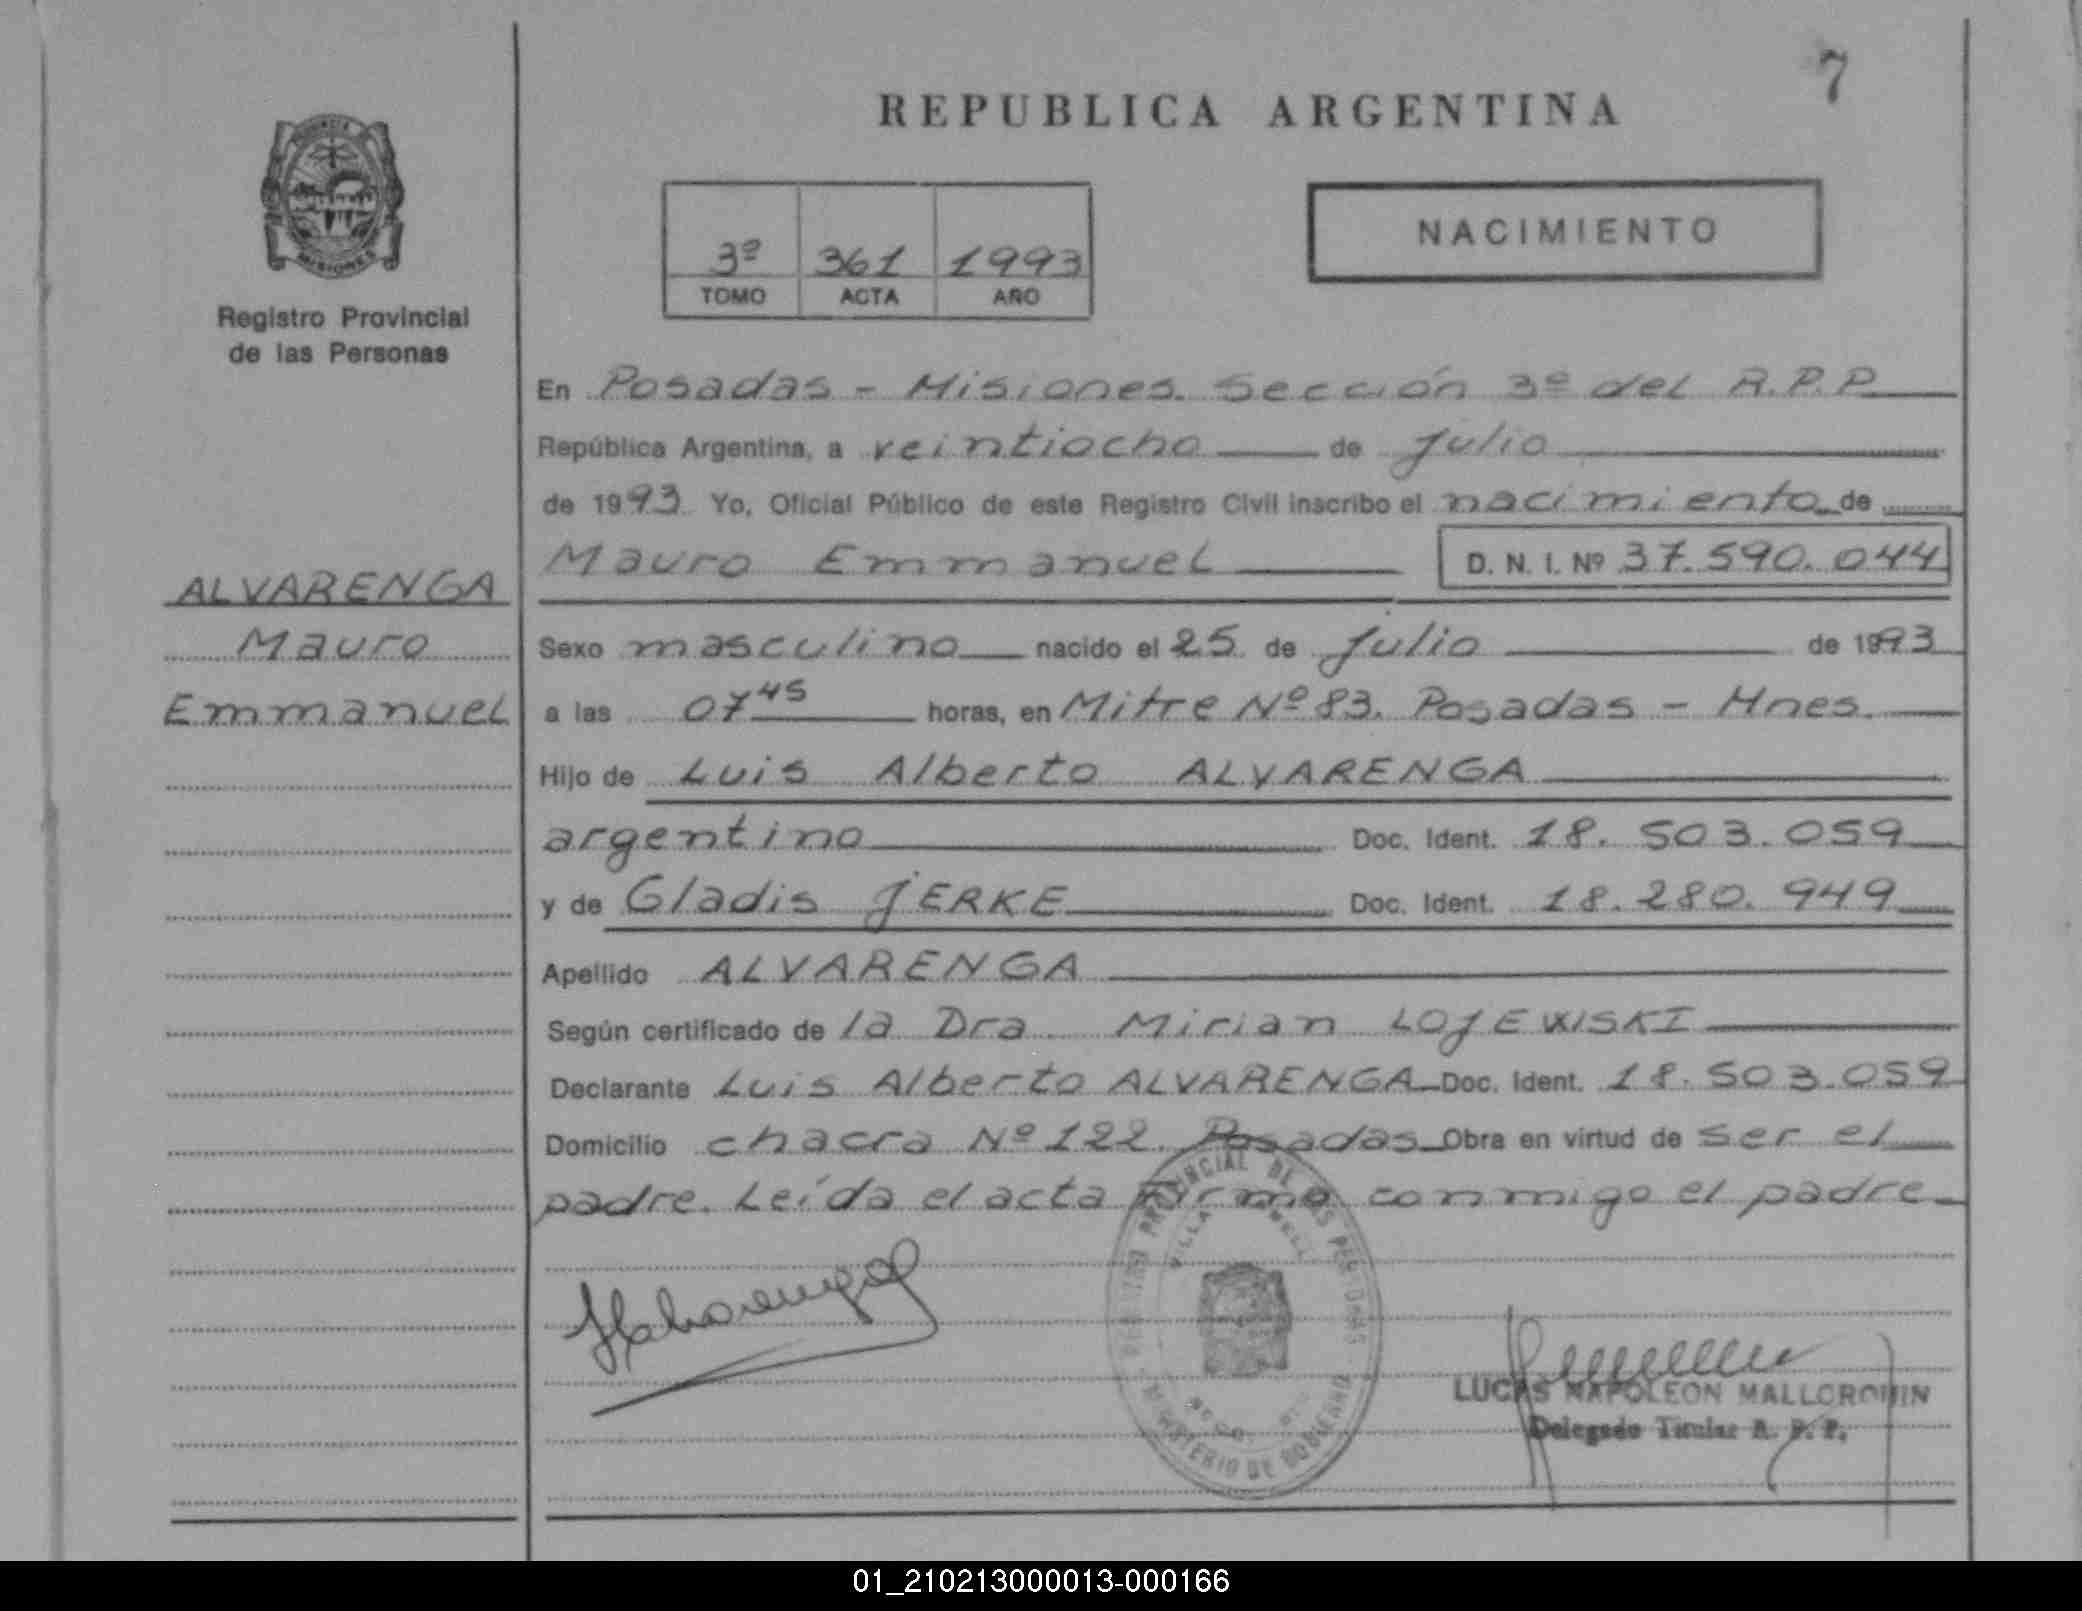 7
REPUBLICA ARGENTINA
PROVINCIA
MISIONES
Registro Provincial
de las Personas
3º 361 1993
TOMO ACTA AÑO
NACIMIENTO
En Posadas - Misiones. Sección 3º del R.P.P
República Argentina, a veintiocho de Julio
de 1993 Yo, Oficial Público de este Registro Civil inscribo el nacimiento de
Mauro Emmanuel D. N. I. Nº 37.590.044
ALVARENGA
Mauro
Emmanuel
Sexo masculino nacido el 25 de Julio de 1993
a las 07 45 horas, en Mitre Nº 83. Posadas - Mnes.
Hijo de Luis Alberto ALVARENGA
argentino Doc. Ident. 18.503.059
y de Gladis JERKE Doc. Ident. 18.280.949
Apellido ALVARENGA
Según certificado de la Dra. Mirian LOJEWISKI
Declarante Luis Alberto ALVARENGA Doc. Ident. 18.503.059
Domicilio chacra Nº 122. Posadas Obra en virtud de ser el
padre. Leída el acta firma conmigo el padre
REGISTRO PROVINCIAL DE LAS PERSONAS
VILLA
MINISTERIO DE GOBIERNO
LUCAS NAPOLEON MALLORQUIN
Delegado Titular R. P. P.
01_210213000013-000166